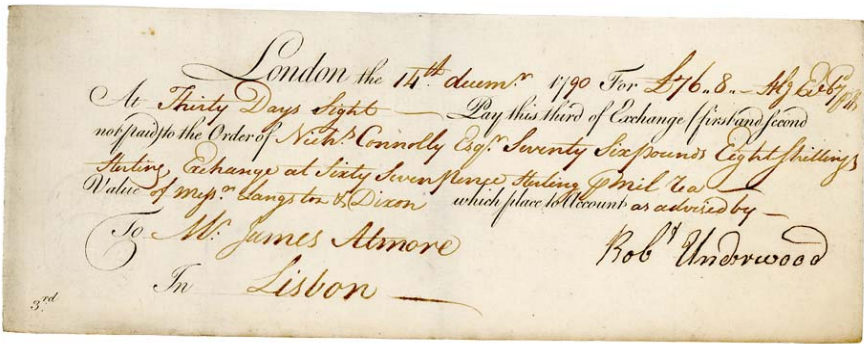 London the 14th. decemr. 1790 For £76„8„- Stg Exc 67
At Thirty Days Sight — Pay this third of Exchange (first and second
not paid) to the Order of Nichs. Connolly Esqr. Seventy Six pounds Eight Shillings
Sterling Exchange at Sixty Seven Pence Sterling ⅌ Mil Rea
Value of Messrs. Langston & Dixon which place to Account as advised by —
To Mr. James Atmore
Robt. Underwood
In Lisbon —
3rd.